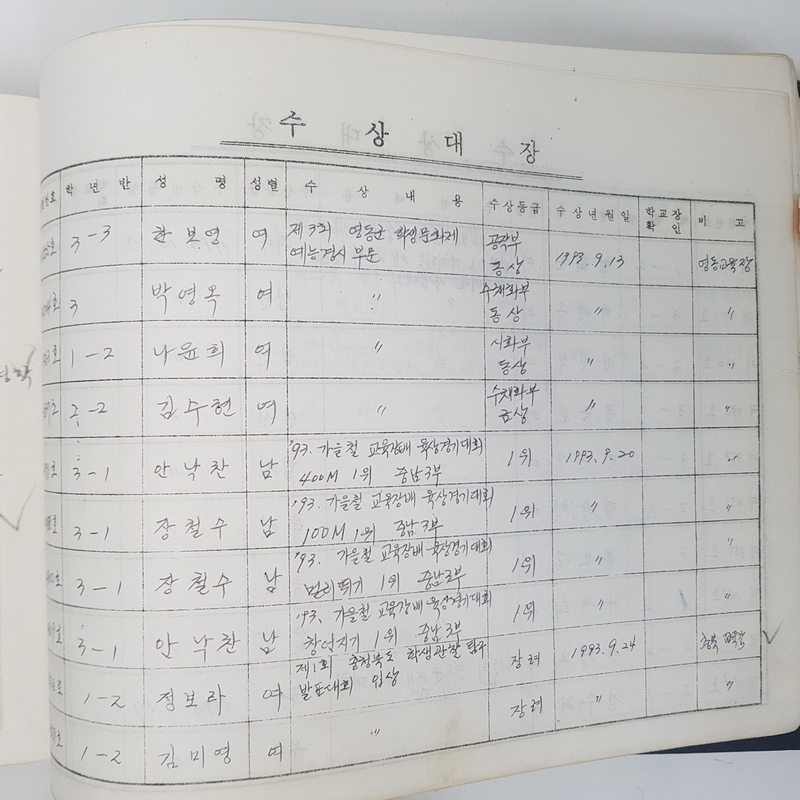 수 상 대 장
학 년 반 성 명 성별 수 상 내 용 수상등급 수 상 년 월 일 학교장 확 인 비 고
3-3 한보영 여 제3회 영동군 학생문화제 예능경시 부문 공작부 동상 1993.9.13 영동교육장
3 박영옥 여 〃 수채화부 동상 〃 〃
1-2 나윤희 여 〃 시화부 동상 〃 〃
2-2 김수현 여 〃 수채화부 〃 〃
3-1 안낙찬 남 '93. 가을철 교육장배 육상경기대회 400M 1위 중남3부 1위 1993.9.20 〃
3-1 장철수 남 '93. 가을철 교육장배 육상경기대회 100M 1위 중남3부 1위 〃 〃
3-1 장철수 남 '93. 가을철 교육장배 육상경기대회 멀리뛰기 1위 중남3부 1위 〃 〃
3-1 안낙찬 남 '93. 가을철 교육장배 육상경기대회 창던지기 1위 중남3부 1위 〃 〃
1-2 정보라 여 제1회 충청북도 학생관찰 탐구 발표대회 입상 장려 1993.9.24 충북
1-2 김미영 여 〃 장려 〃 〃